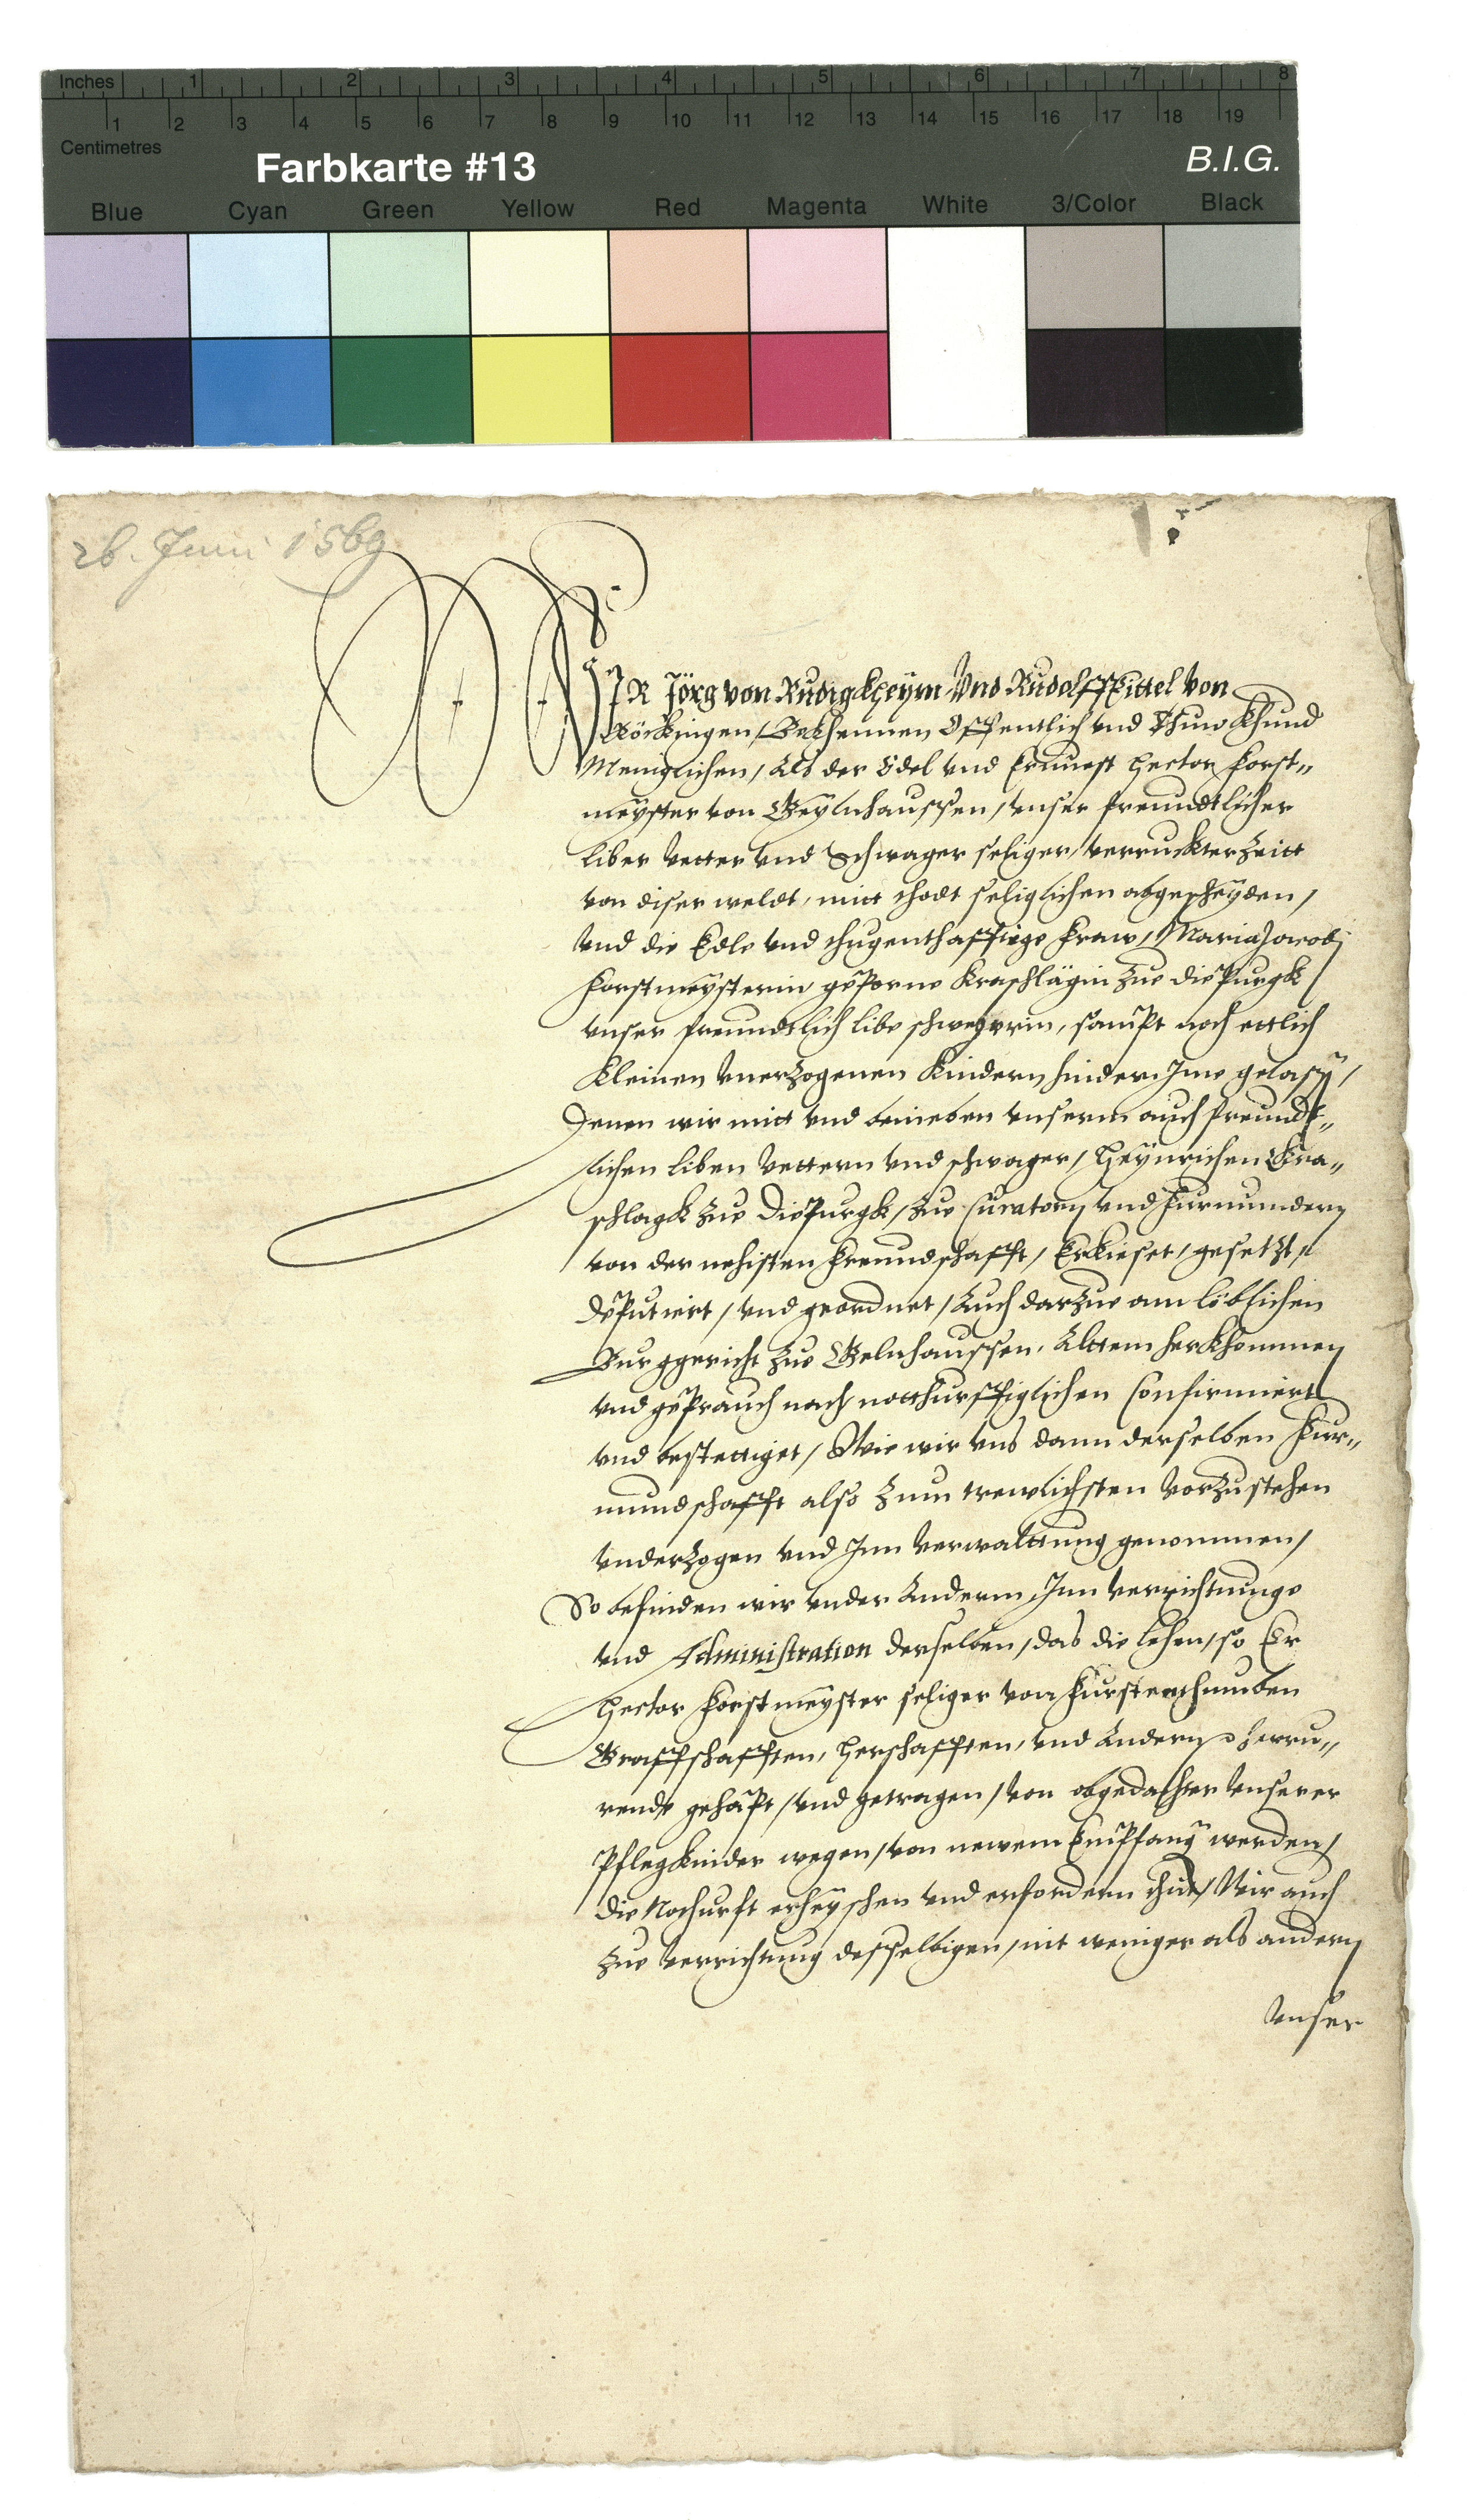 Inches 1 2 3 4 5 6 7 8
1 2 3 4 5 6 7 8 9 10 11 12 13 14 15 16 17 18 19
Centimetres
Farbkarte #13 B.I.G.
Blue Cyan Green Yellow Red Magenta White 3/Color Black
26. Juni 1569
WIR Jörg von Rudigkheym vnd Rudolff Kittel von
Bekhennen Offentlich vnd Thuw Khund
Meniglichen, Als der Edel vnd Ernuest Hector Forst„
meyster von Geylnhaussen, vnser freundtlicher
liber Vetter vnd Schwager seliger, verruckter Zeitt
von diser weldt, mitt thodt seliglichen abgescheyden,
Vnd die Edle vnd thugenthafftige Fraw, Maria Jacobj
Forstmeysterin geporne Kraschlägin zue Diepurgk
vnser freundtlich libe schwegerin, sampt noch ettlich
Kleinen Vnerzogenen Kindern hinder Jme gelassen,
Denen wir mitt vnd beneben vnserm auch freundt„
lichen liben Vettern vnd schwager, Heynrichen Kra„
schlagk zue Diepurgk, zue Curatorn vnd Furmundern
von der nehisten Freundschafft, Erkieset, gesetzt,
deputiert, vnd geordnet, Auch darzue am löblichen
Burggericht zue Gelnhaussen, Alttem herkhommen
vnd geprauch nach notthurfftiglichen Confirmiert
vnd bestettiget, Wie wir vns dann derselben Fur„
mundschafft also zum trewlichsten Vorzustehen
vnderzogen vnd Jnn Verwalttung genommen,
So befinden wir vnder Anderm Jnn Verrichtunge
vnd Administration derselben, das die Lehen, so Er
Hector Forstmeyster seliger von Furstenthumben
Graffschafften, Herschafften, vnd Andern herru„
rende gehapt, vnd getragen, von obgedachter vnserer
Pflegkinder wegen, von newem Empfang werden,
die Nothurft erheyschen vnd erfordern thut, Wir auch
zue Verrichtung desselbigen, nit weniger als andern
Vnser